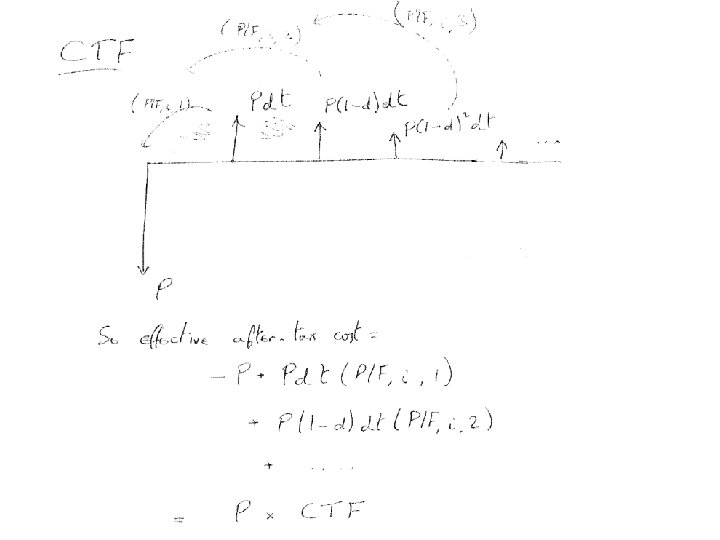 CTF
(P/F, i, 3)
(P/F, i, 2)
(P/F, i, 1)
Pdt
P(1-d)dt
P(1-d)²dt
...
P
So effective after-tax cost =
- P + Pdt (P/F, i, 1)
+ P(1-d)dt (P/F, i, 2)
+ ....
= P × CTF